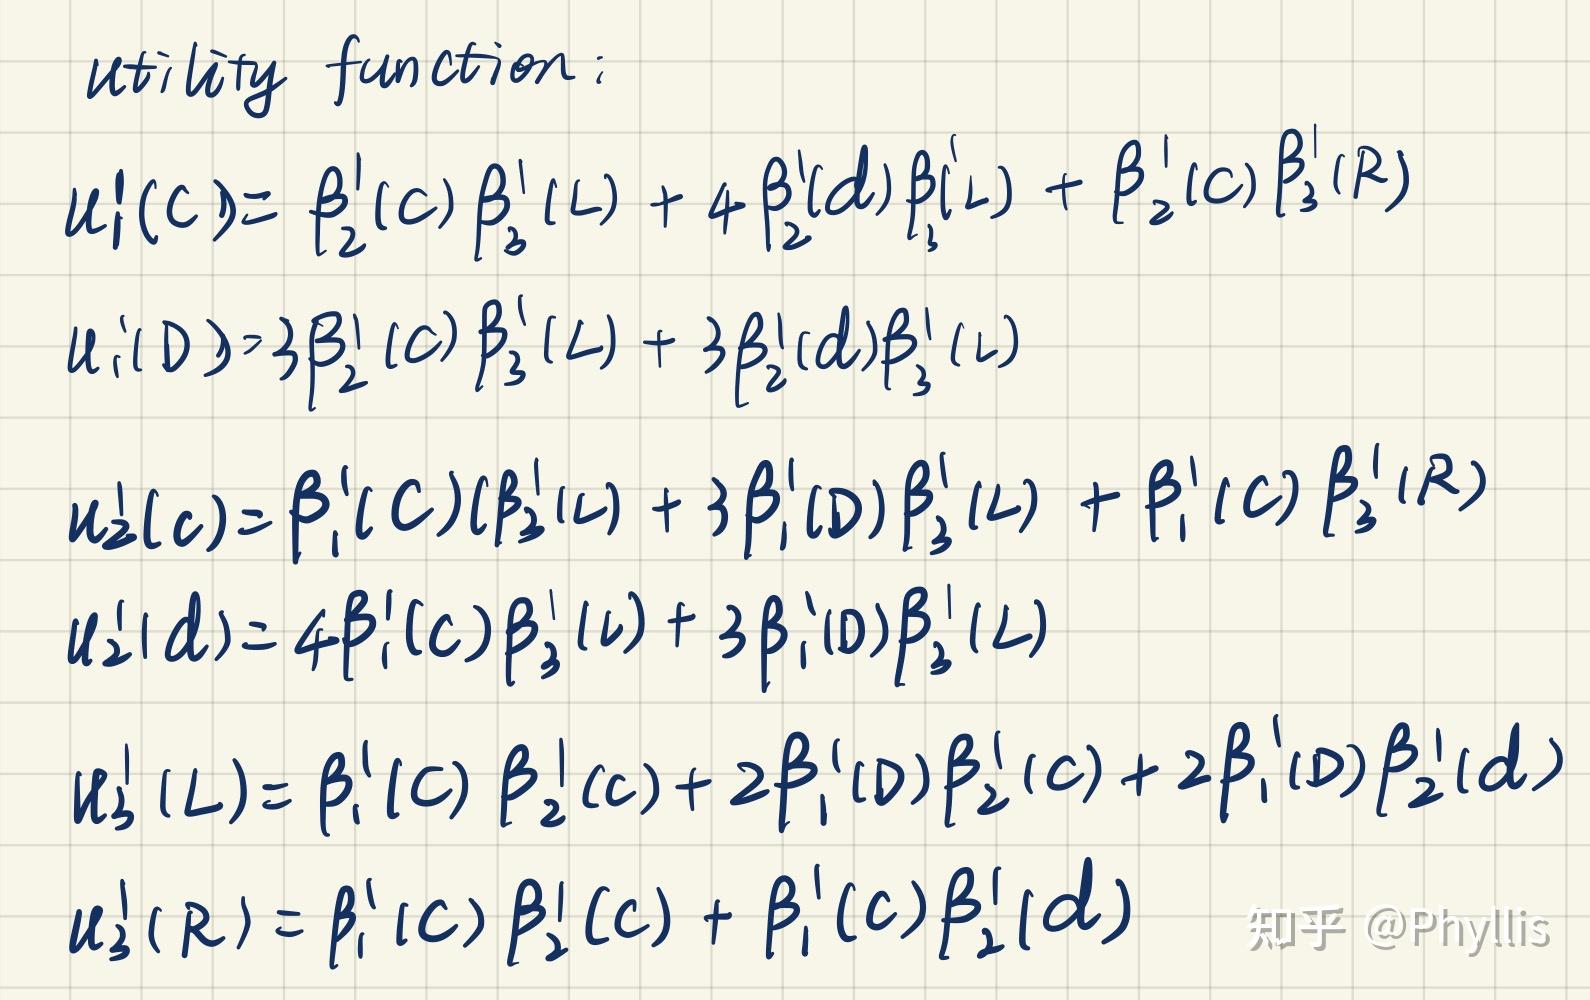 utility function:
u₁¹(C) = β₂¹(c) β₃¹(L) + 4β₂¹(d) β₃¹(L) + β₂¹(c) β₃¹(R)
u₁¹(D) = 3β₂¹(c) β₃¹(L) + 3β₂¹(d) β₃¹(L)
u₂¹(c) = β₁¹(C)(β₃¹(L) + 3β₁¹(D) β₃¹(L) + β₁¹(C) β₃¹(R)
u₂¹(d) = 4β₁¹(C) β₃¹(L) + 3β₁¹(D) β₃¹(L)
u₃¹(L) = β₁¹(C) β₂¹(c) + 2β₁¹(D) β₂¹(c) + 2β₁¹(D) β₂¹(d)
u₃¹(R) = β₁¹(C) β₂¹(c) + β₁¹(C) β₂¹(d)
知乎 @Phyllis